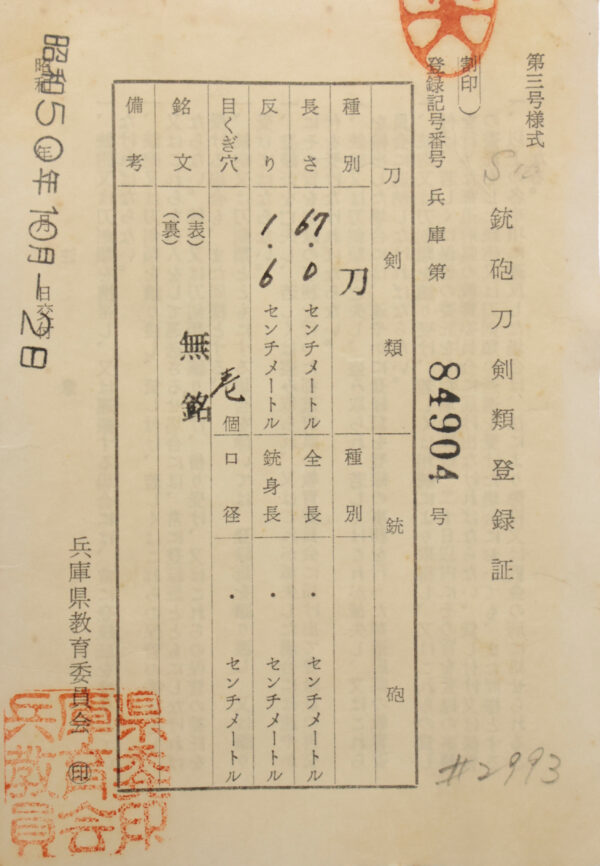 第三号様式
S
銃砲刀剣類登録証
(割印)
登録記号番号 兵庫第 84904 号
刀剣類
種別 刀
長さ 67.0 センチメートル
反り 1.6 センチメートル
目くぎ穴 壱 個
銘文 (表) (裏) 無銘
備考
銃砲
種別
全長 ・ センチメートル
銃身長 ・ センチメートル
口径 ・ センチメートル
昭和50年10月-2日
昭和 年 月 日交付
兵庫県教育委員会 ㊞
兵庫県教育委員会印
#2993